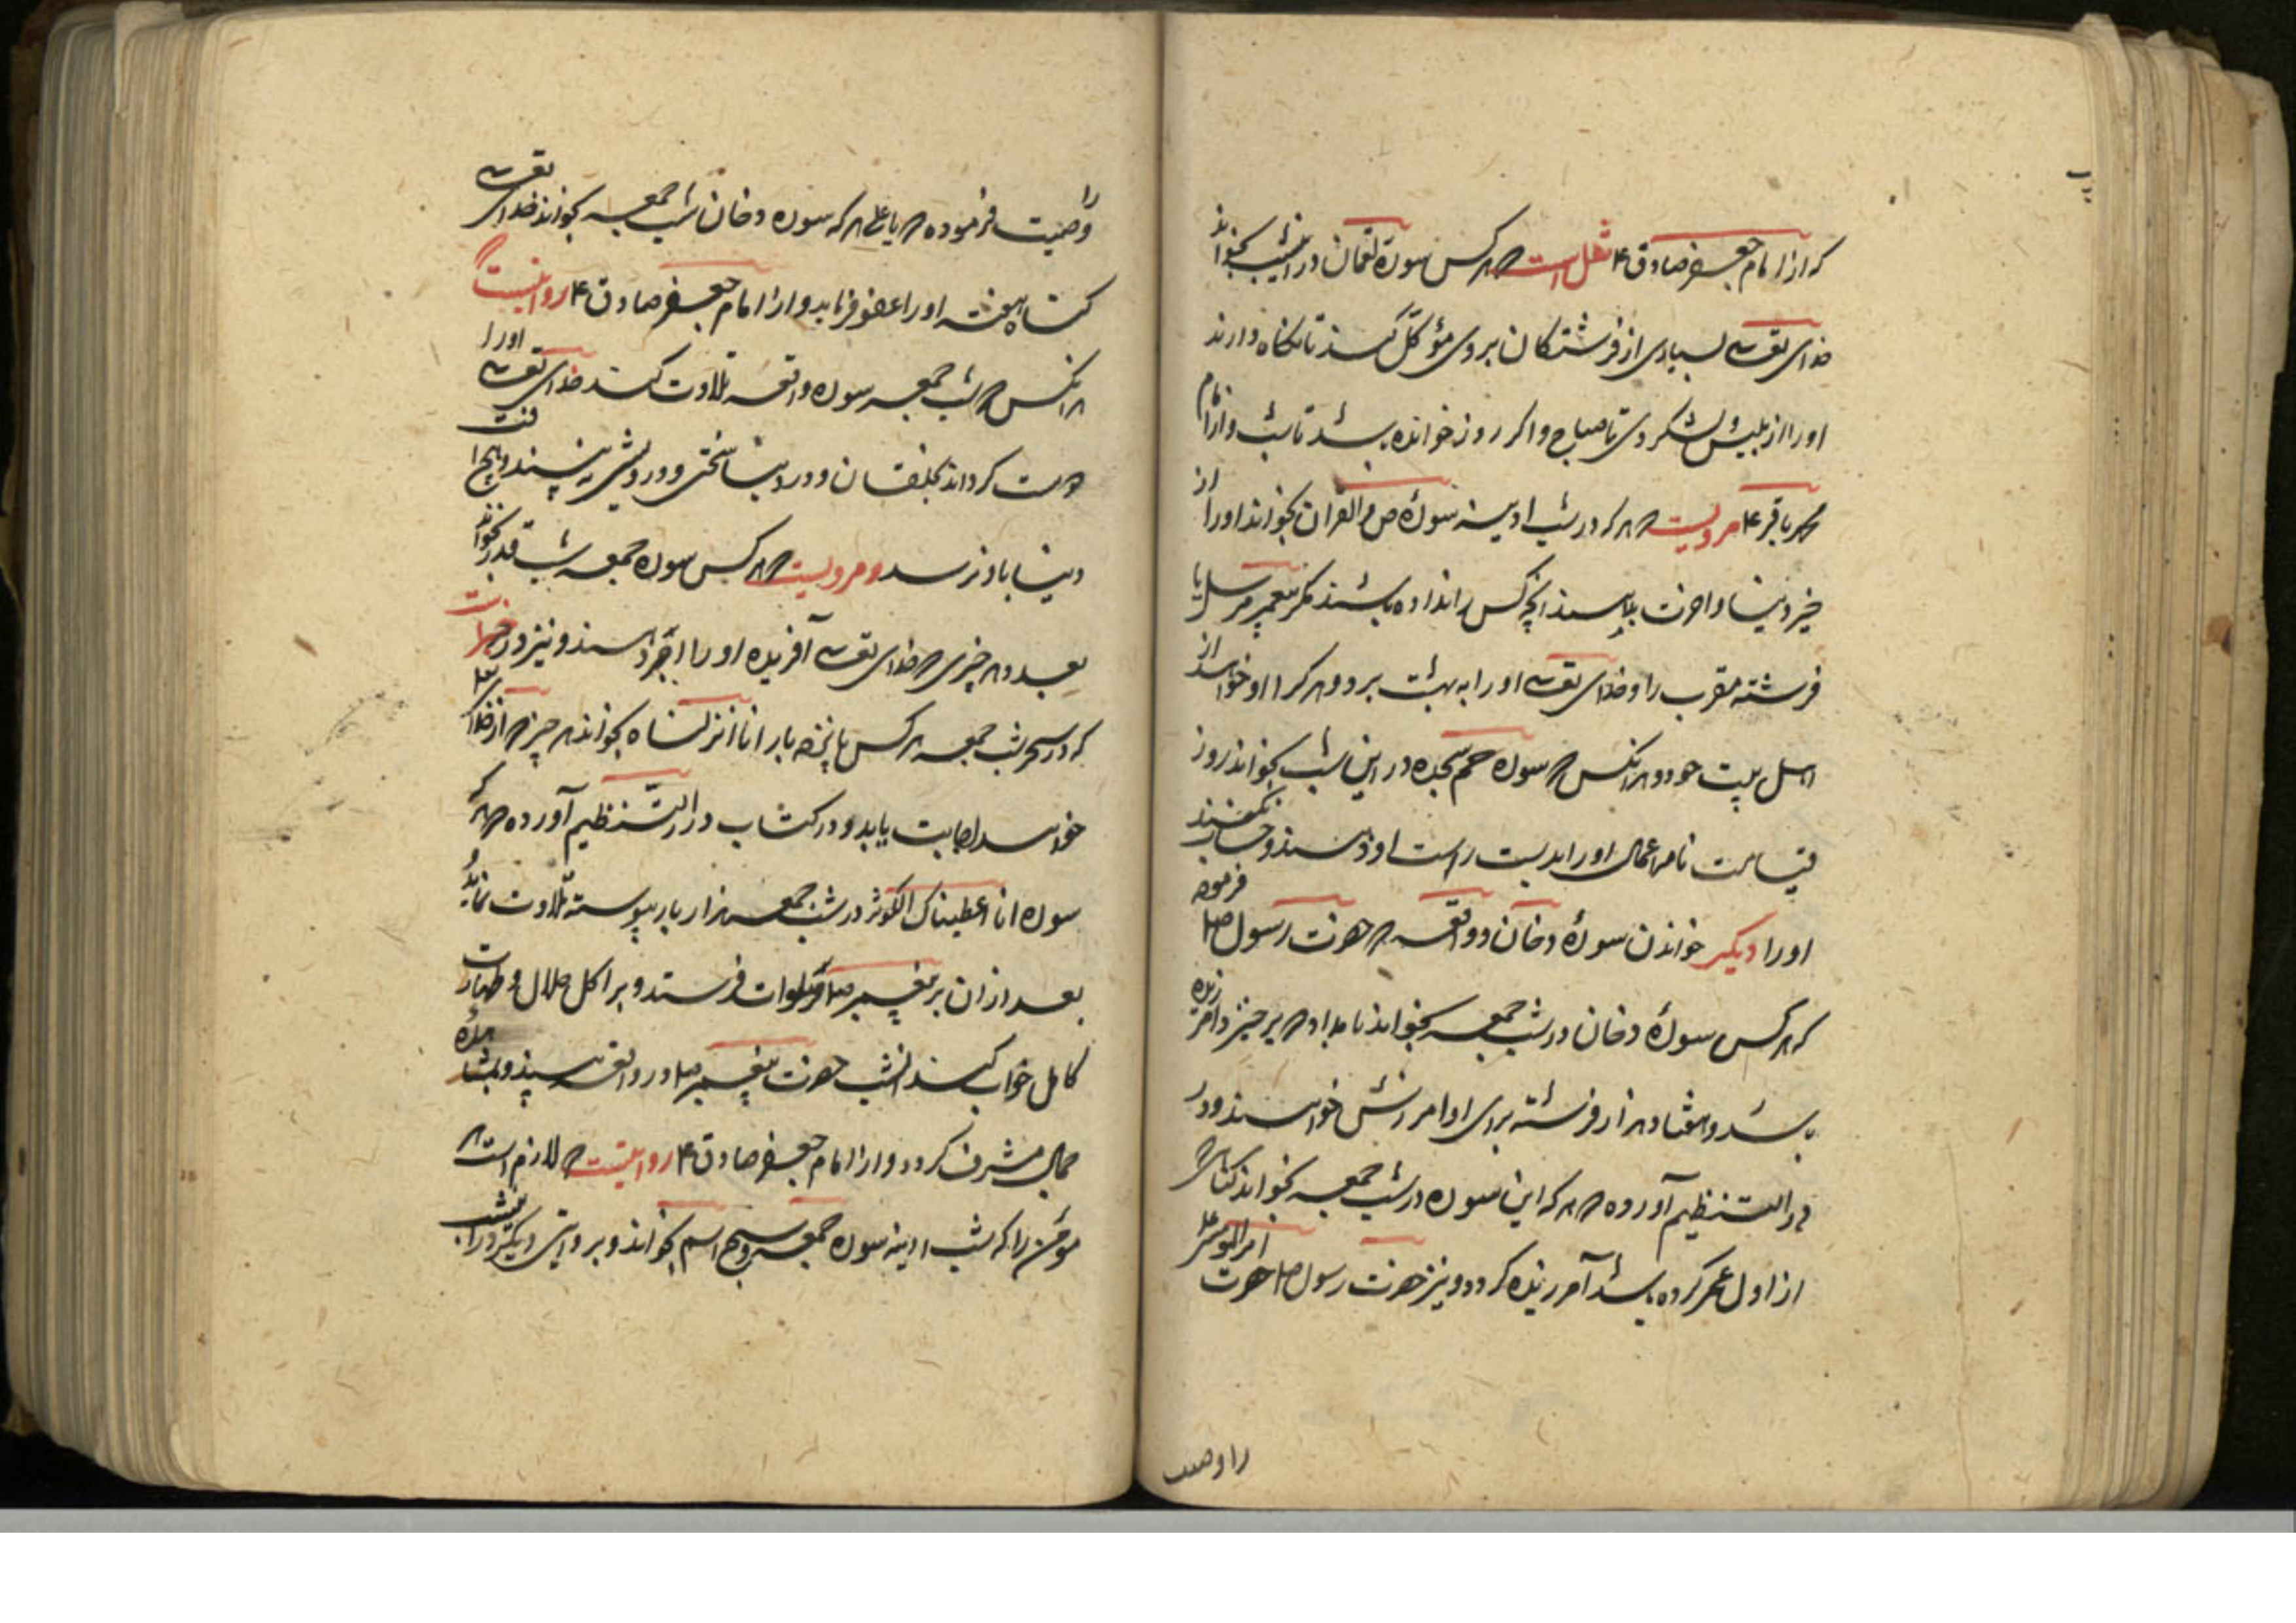 که از امام جعفر صادق ع نقل است که هر کس سورة لقمان در این شب بخواند
خدای تعالی بسیاری از فرشتگان بروی مؤکّل کند تا نگاه دارند
او را از ابلیس و لشکر وی تا صباح و اگر روز خوانده باشد تا شب و از امام
محمد باقر ع مرویست که هر که در شب ادینه سورۀ ص و القران بخواند او را از
خیر دنیا و اخرت بدهند انچه کس را نداده باشند مگر پیغمبر مرسل یا
فرشته مقرب را و خدای تعالی او را به بهشت برد و هر که را او خواهد از
اهل بیت خود و هر انکس که سوره حم سجده در این شب بخواند روز
قیامت نامه اعمال او را بدست راست او دهند و حساب نکنند
او را دیگر خواندن سورۀ دخان و واقعه که حضرت رسول ص فرموده
که هر کس سورۀ دخان در شب جمعه بخواند بامداد که برخیزد آمرزیده
باشد و هفتاد هزار فرشته برای او امرزش خواهند و در
در التنظیم آورده که هر که این سوره در شب جمعه بخواند گناهی که
از اول عمر کرده باشد آمرزیده گردد و نیز حضرت رسول ص حضرت امیر المومنین ع
را وصیت
را وصیت فرموده که یا علی هر که سوره دخان شب جمعه بخواند خدای تعالی
گناه هفته او را عفو فرماید و از امام جعفر صادق ع روایتست
هر انکس که شب جمعه سوره واقعه تلاوت کند خدای تعالی او را
دوست گرداند بخلقان و در دنیا سختی و درویشی نه بیند و هیچ افت
دنیا باو نرسد و مرویست که هر کس سوره جمعه شب قدر بخواند
بعدد هر چیزی که خدای تعالی آفریده او را اجر دهند و نیز در خبر است
که در سحر شب جمعه هر کس پانزده بار انا انزلناه بخواند هر چیز که از خدای تعالی
خواهد اجابت یابد و در کتاب در التنظیم آورده که هر که
سوره انا اعطیناک الکوثر در شب جمعه هزار بار پیوسته تلاوت نماید
بعد از ان بر پیغمبر ص صلوات فرستد و بر اکل حلال و طهارت
کامل خواب کند انشب حضرت پیغمبر ص در واقعه بیند و بمشاهده
جمال مشرف گردد و از امام جعفر صادق ع روایتست که لازم است هر
مؤمن را که شب ادینه سوره جمعه و سبح اسم بخواند و بروایتی دیگر در این شب